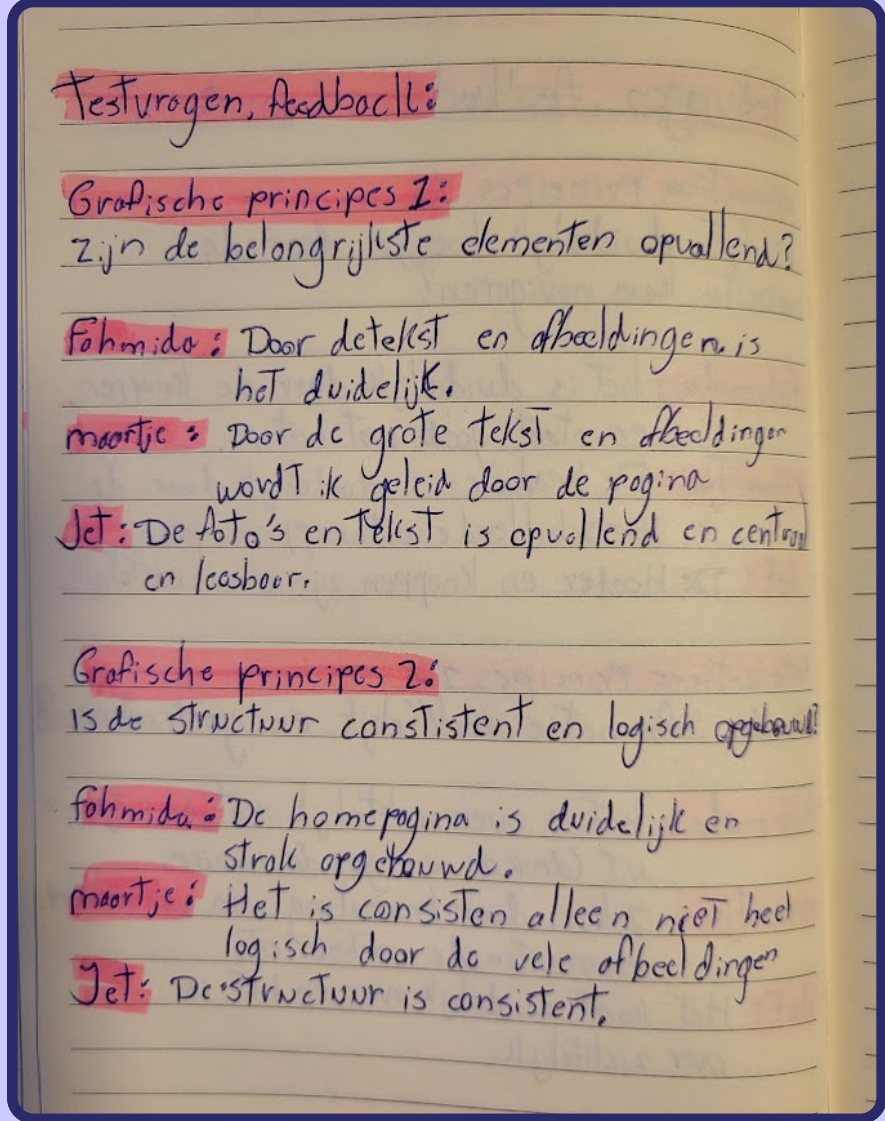 Testvragen, feedback:
Grafische principes 1:
Zijn de belangrijkste elementen opvallend?
Fahmida: Door de tekst en afbeeldingen is
het duidelijk.
maartje: Door de grote tekst en afbeeldingen
wordt ik geleid door de pagina
Jet: De foto's en tekst is opvallend en centraal
en leesbaar.
Grafische principes 2:
is de structuur constistent en logisch opgebouwd?
fahmida: De homepagina is duidelijk en
strak opgebouwd.
maartje: Het is consisten alleen niet heel
logisch door de vele afbeeldingen
Jet: De structuur is consistent.